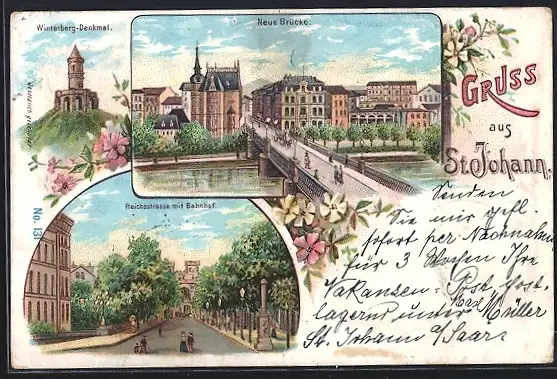 Winterberg-Denkmal.
Neue Brücke.
GRUSS
aus
St. Johann.
Reichsstrasse mit Bahnhof.
No. 131
Senden
Sie mir gefl.
sofort per Nachnahme
für 3 Wochen Ihre
Vakanzen-Post, post-
lagernd unter Karl Müller
St. Johann a/Saar